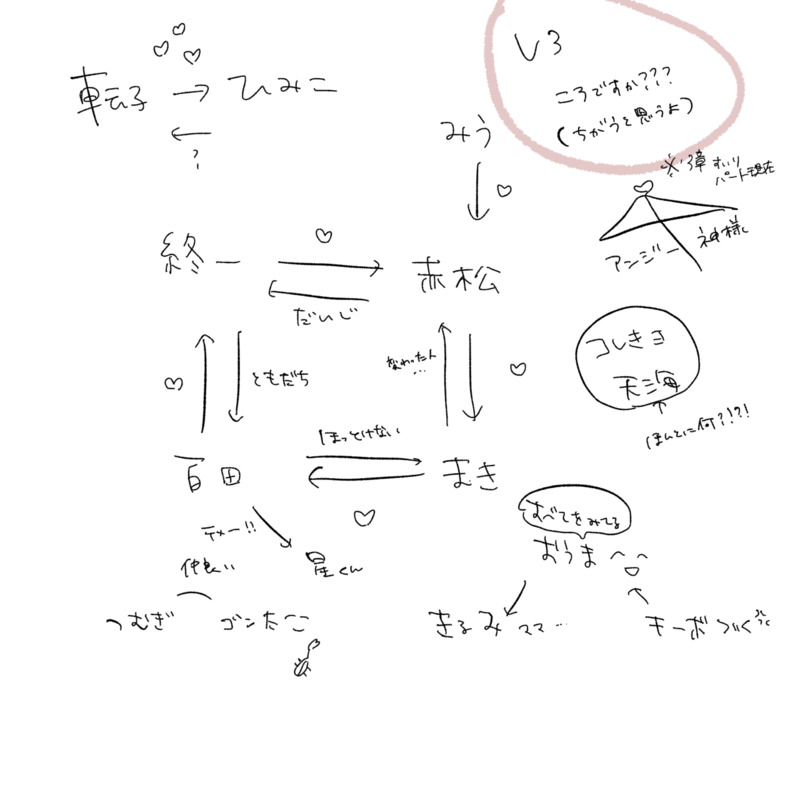 V3
ころですか???
(ちがうと思うよ)
転子 → ひみこ
?
みう
※1章 すいり
パート現在
アンジー 神様
終一
赤松
だいじ
ともだち
コレきよ
天海
ほんとに何?!?!
ほっとけない
百田
まき
テメー!!
星くん
すべてをみてる
おうま
仲良い
つむぎ
ゴンたこ
きるみ ママ…
キーボ